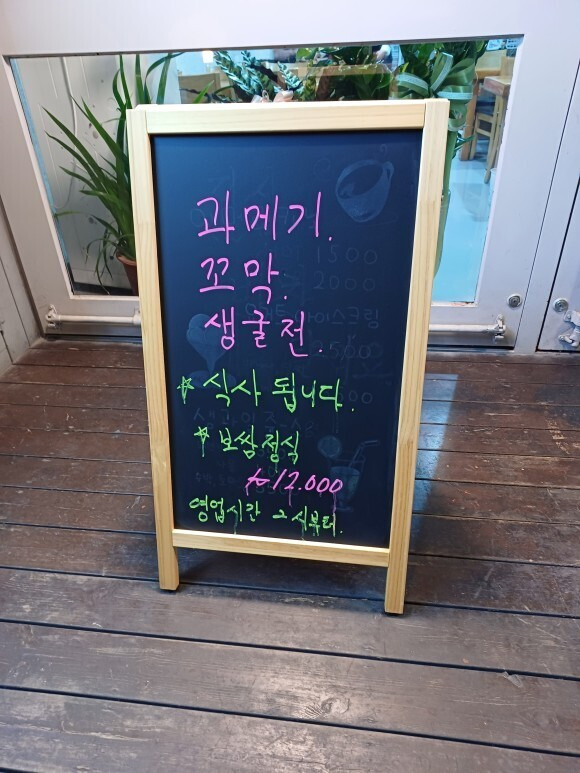 과메기.
꼬막.
생굴전.
☆ 식사 됩니다.
☆ 보쌈정식
₩12.000
영업시간 2시부터.
1500
2000